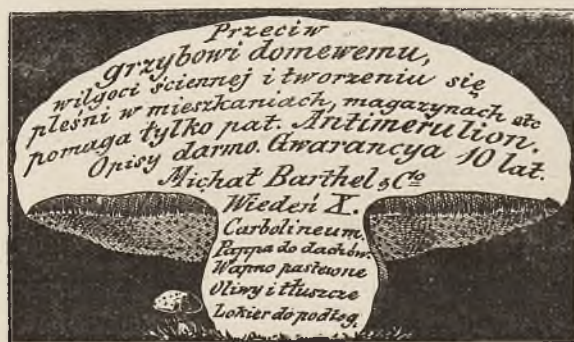 Przeciw
grzybowi domewemu,
wilgoci ściennej i tworzeniu się
pleśni w mieszkaniach, magazynach etc
pomaga tylko pat. Antimerulion.
Opisy darmo. Gwarancya 10 lat.
Michał Barthel & Cie
Wiedeń X.
Carbolineum.
Pappa do dachów.
Wapno pastewne
Oliwy i tłuszcze
Lokier do podłog.